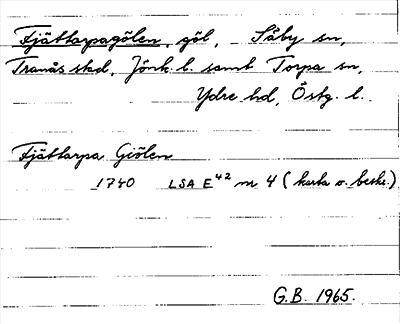 Fjättarpagölen, göl, Säby sn,
Tranås stad, Jönk. l. samt Torpa sn,
Ydre hd, Östg. l.
Fjättarpa Giölen
1740 LSA E⁴² nr 4 (karta o. beskr.)
G.B. 1965.